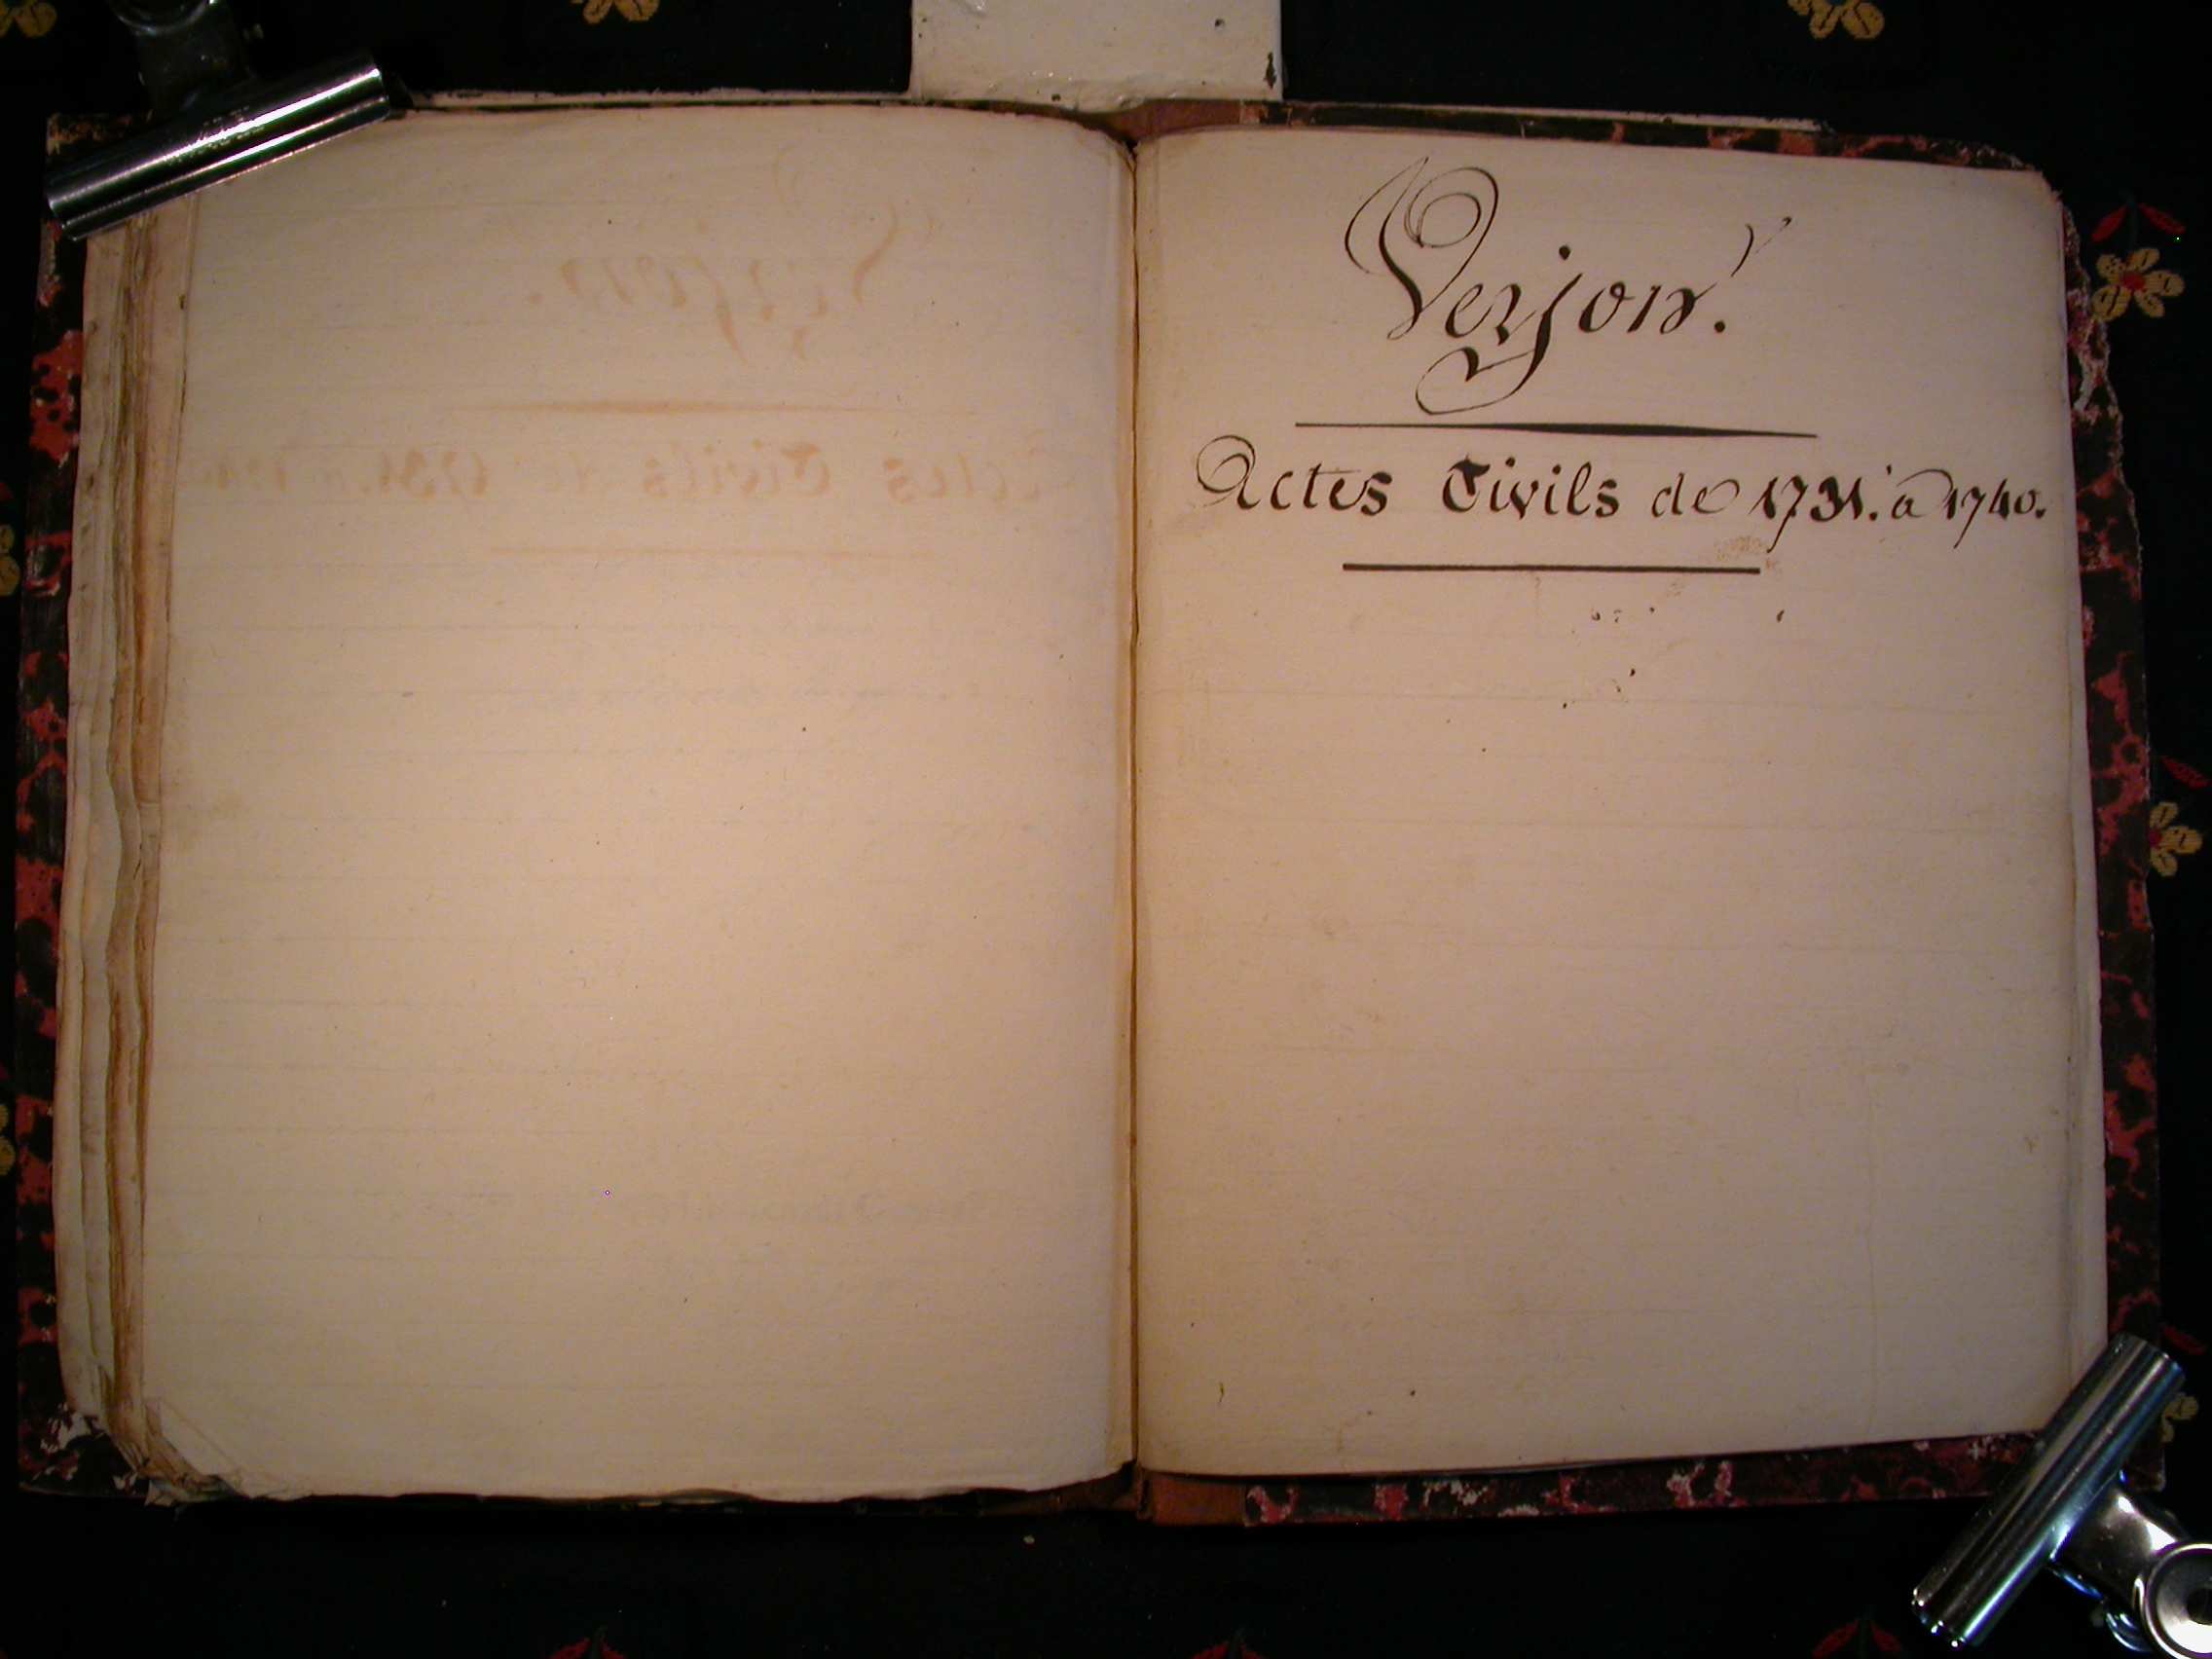 Verjon.
Actes Civils de 1731. à 1740.